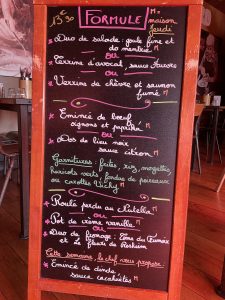 13€30 FORMULE M= maison
Jeudi
Duo de salade : gouta fine et
de menthe
ou
Verrine d'avocat, sauce Aurore
ou
Verrine de chèvre et saumon
fumé M
Emincé de bœuf
oignons et paprika M
ou
Dos de lieu noir
sauce citron M
Garnitures : frites, riz, mogettes,
haricots verts, fondue de poireaux
ou carottes Vichy M
Roulé perdu au Nutella M
ou
Pot de crème vanille M
ou
Duo de fromage : Tome du
et Le Fleuri de
Cette semaine, le chef vous propose :
Emincé de dinde
sauce cacahuètes M